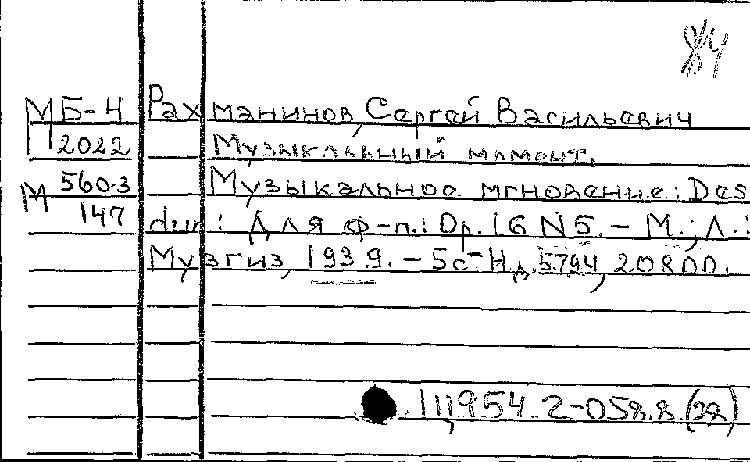 84
МБ-Н Рахманинов, Сергей Васильевич
М 2022 Музыкальный момент.
М 560-3 Музыкальное мгновение: Des
147 dur: Для ф-п.: Op. 16 N 5. - М.; Л.:
Музгиз, 1939. - 5с - Н.д. 5794, 20800.